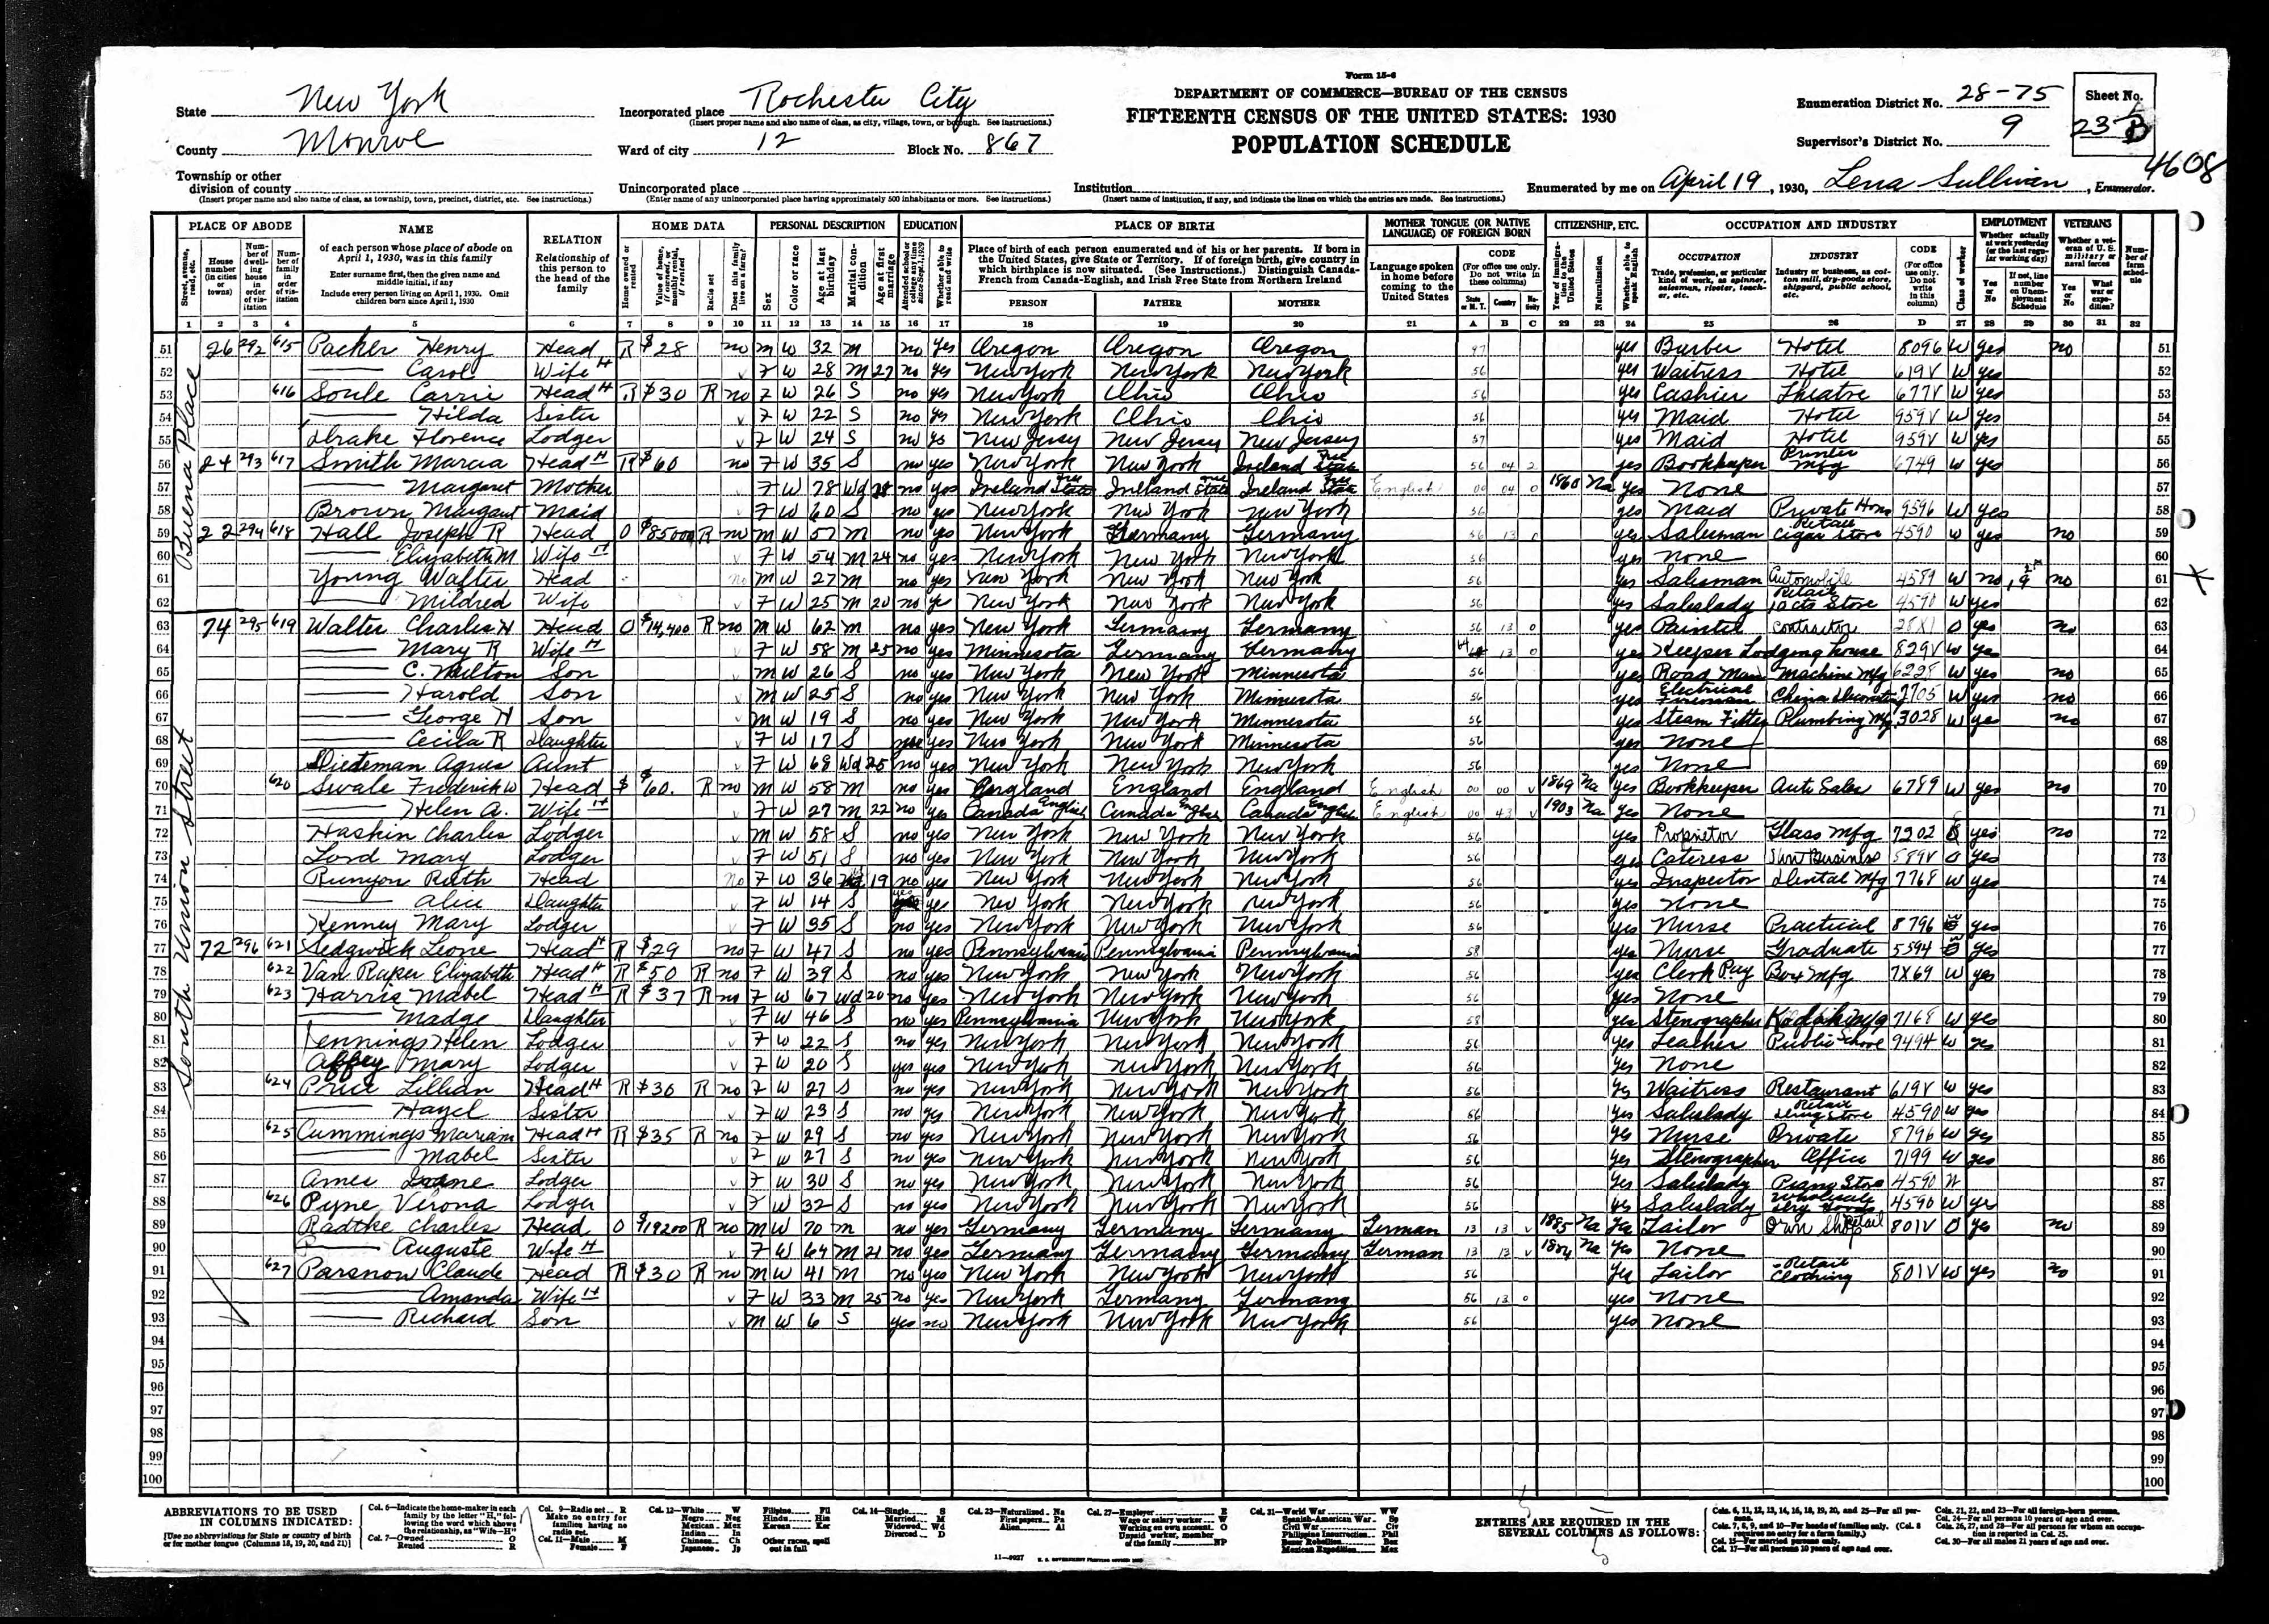 Form 15-6
DEPARTMENT OF COMMERCE—BUREAU OF THE CENSUS
FIFTEENTH CENSUS OF THE UNITED STATES: 1930
POPULATION SCHEDULE
State New York
County Monroe
Township or other division of county
(Insert proper name and also name of class, as township, town, precinct, district, etc. See instructions.)
Incorporated place Rochester City
(Insert proper name and also name of class, as city, village, town, or borough. See instructions.)
Ward of city 12 Block No. 867
Unincorporated place
(Enter name of any unincorporated place having approximately 500 inhabitants or more. See instructions.)
Institution
(Insert name of institution, if any, and indicate the lines on which the entries are made. See instructions.)
Enumeration District No. 28-75
Supervisor's District No. 9
Sheet No. 23 B
4608
Enumerated by me on April 19, 1930, Lena Sullivan, Enumerator.
PLACE OF ABODE NAME RELATION HOME DATA PERSONAL DESCRIPTION EDUCATION PLACE OF BIRTH MOTHER TONGUE (OR NATIVE LANGUAGE) OF FOREIGN BORN CITIZENSHIP, ETC. OCCUPATION AND INDUSTRY EMPLOYMENT VETERANS
Buena Place
51 26 292 615 Packer Henry Head R $28 no M W 32 M no yes Oregon Oregon Oregon 97 yes Barber Hotel 8096 W yes no 51
52 Carol Wife H F W 28 M 27 no yes New York New York New York 56 yes Waitress Hotel 619V W yes 52
53 616 Soule Carrie Head H R $30 R no F W 26 S no yes New York Ohio Ohio 56 yes Cashier Theatre 677V W yes 53
54 Hilda Sister F W 22 S no yes New York Ohio Ohio 56 yes Maid Hotel 959V W yes 54
55 Drake Florence Lodger F W 24 S no yes New Jersey New Jersey New Jersey 57 yes Maid Hotel 959V W yes 55
56 24 293 617 Smith Marcia Head H R $60 no F W 35 S no yes New York New York Ireland Free State 56 04 2 yes Bookkeeper Printer Mfg 6749 W yes 56
57 Margaret Mother F W 78 Wd 28 no yes Ireland Free State Ireland Free State Ireland Free State English 00 04 0 1860 Na yes None 57
58 Brown Margaret Maid F W 60 S no yes New York New York New York 56 yes Maid Private Home 9596 W yes 58
59 22 294 618 Hall Joseph R Head O $85000 R no M W 57 M no yes New York Germany Germany 56 13 0 yes Salesman Retail Cigar Store 4590 W yes no 59
60 Elizabeth M Wife H F W 54 M 24 no yes New York New York New York 56 yes None 60
61 Young Walter Head no M W 27 M no yes New York New York New York 56 yes Salesman Automobile 4589 W no no 61
62 Mildred Wife F W 25 M 20 no yes New York New York New York 56 yes Saleslady Retail 10 cts Store 4590 W yes 62
South Union Street
63 74 295 619 Walter Charles H Head O $14,400 R no M W 62 M no yes New York Germany Germany 56 13 0 yes Painter Contractor 28X1 O yes no 63
64 Mary R Wife H F W 58 M 25 no yes Minnesota Germany Germany 13 0 yes Keeper Lodging house 829V W yes 64
65 C. Milton Son M W 26 S no yes New York New York Minnesota 56 yes Road Man Machine Mfg 6228 W yes no 65
66 Harold Son M W 25 S no yes New York New York Minnesota 56 yes Electrical Fireman China Decorating 7705 W yes no 66
67 George H Son M W 19 S no yes New York New York Minnesota 56 yes Steam Fitter Plumbing Mfg 3028 W yes no 67
68 Cecila R Daughter F W 17 S yes New York New York Minnesota 56 yes None 68
69 Dieteman Agnes Aunt F W 68 Wd 25 no yes New York New York New York 56 yes None 69
70 620 Swale Frederick W Head $ $60. R no M W 58 M no yes England England England English 00 00 V 1869 Na yes Bookkeeper Auto Sales 6789 W yes no 70
71 Helen A. Wife H F W 27 M 22 no yes Canada English Canada English Canada English English 00 43 V 1903 Na yes None 71
72 Haskin Charles Lodger M W 58 S no yes New York New York New York 56 yes Proprietor Glass Mfg 7202 yes no 72
73 Lord Mary Lodger F W 51 S no yes New York New York New York 56 yes Cateress Own Business 589V O yes 73
74 Runyon Ruth Head No F W 36 19 no yes New York New York New York 56 yes Inspector Dental Mfg 7768 W yes 74
75 Alice Daughter F W 14 S yes yes New York New York New York 56 yes None 75
76 Kenney Mary Lodger F W 35 S no yes New York New York New York 56 yes Nurse Practical 8796 yes 76
77 72 296 621 Sedgwick Leone Head H R $29 no F W 47 S no yes Pennsylvania Pennsylvania Pennsylvania 58 yes Nurse Graduate 5594 yes 77
78 622 Van Raper Elizabeth Head H R $50 R no F W 39 S no yes New York New York New York 56 yes Clerk Pay Box Mfg 7X69 W yes 78
79 623 Harris Mabel Head H R $37 R no F W 67 Wd 20 no yes New York New York New York 56 yes None 79
80 Madge Daughter F W 46 S no yes Pennsylvania New York New York 58 yes Stenographer Kodak Mfg 7168 W yes 80
81 Jennings Helen Lodger F W 22 S no yes New York New York New York 56 yes Teacher Public School 9494 W yes 81
82 Affey Mary Lodger F W 20 S yes yes New York New York New York 56 yes None 82
83 624 Price Lillian Head H R $30 R no F W 27 S no yes New York New York New York 56 yes Waitress Restaurant 619V W yes 83
84 Hazel Sister F W 23 S no yes New York New York New York 56 yes Saleslady Retail Drug Store 4590 W yes 84
85 625 Cummings Mariam Head H R $35 R no F W 29 S no yes New York New York New York 56 yes Nurse Private 8796 W yes 85
86 Mabel Sister F W 27 S no yes New York New York New York 56 yes Stenographer Office 7199 W yes 86
87 Lodger F W 30 S no yes New York New York New York 56 yes Saleslady Piano Store 4590 W 87
88 626 Pyne Verona Lodger F W 32 S no yes New York New York New York 56 yes Saleslady Wholesale Dry Goods 4590 W yes 88
89 Radtke Charles Head O $19200 R no M W 70 M no yes Germany Germany Germany German 13 13 V 1885 Na yes Tailor Own Shop Retail 801V O yes no 89
90 Auguste Wife H F W 64 M 21 no yes Germany Germany Germany German 13 13 V Na yes None 90
91 627 Parsnow Claude Head R $30 R no M W 41 M no yes New York New York New York 56 yes Tailor Retail Clothing 801V W yes no 91
92 Amanda Wife H F W 33 M 25 no yes New York Germany Germany 56 13 0 yes None 92
93 Richard Son M W 6 S yes no New York New York New York 56 yes None 93
94 94
95 95
96 96
97 97
98 98
99 99
100 100
ABBREVIATIONS TO BE USED IN COLUMNS INDICATED:
[Use no abbreviations for State or country of birth or for mother tongue (Columns 18, 19, 20, and 21)]
ENTRIES ARE REQUIRED IN THE SEVERAL COLUMNS AS FOLLOWS:
11—9027